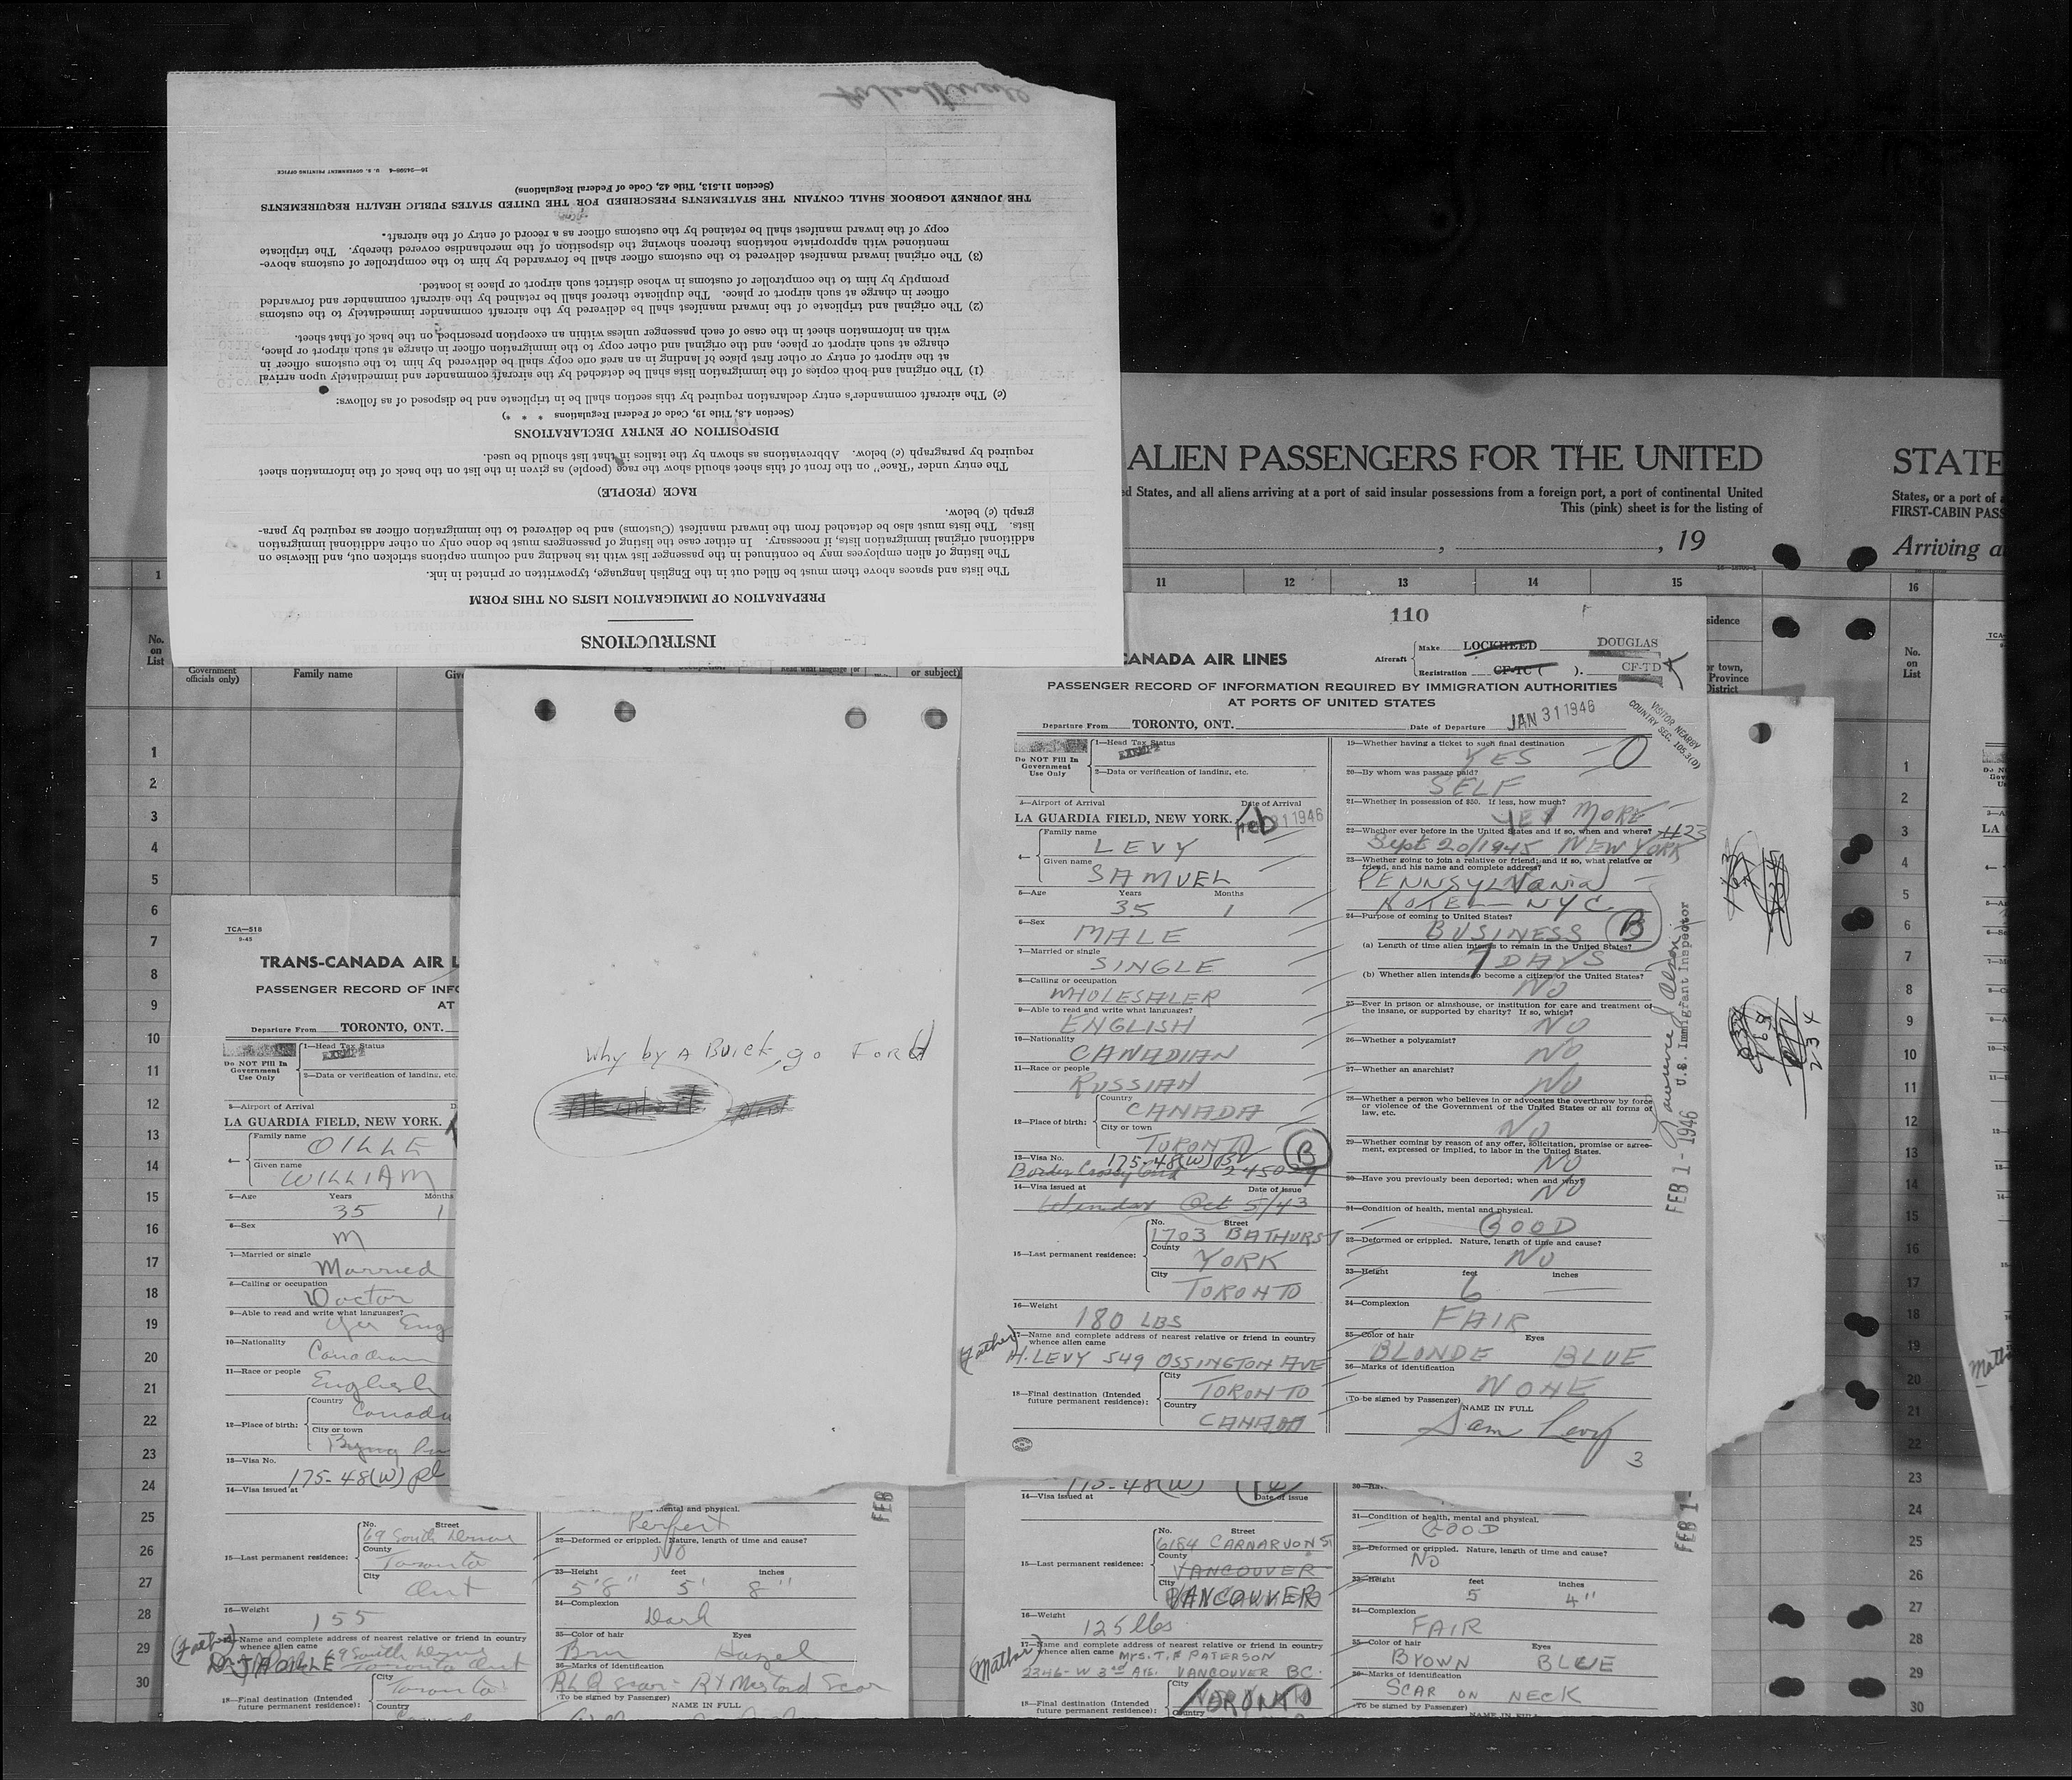 16—24598-4 U. S. GOVERNMENT PRINTING OFFICE
INSTRUCTIONS
PREPARATION OF IMMIGRATION LISTS ON THIS FORM
The lists and spaces above them must be filled out in the English language, typewritten or printed in ink.
The listing of alien employees may be continued in the passenger list with its heading and column captions stricken out, and likewise on
additional original immigration lists, if necessary. In either case the listing of passengers must be done only on other additional immigration
lists. The lists must also be detached from the inward manifest (Customs) and be delivered to the immigration officer as required by para-
graph (c) below.
RACE (PEOPLE)
The entry under "Race" on the front of this sheet should show the race (people) as given in the list on the back of the information sheet
required by paragraph (c) below. Abbreviations as shown by the italics in that list should be used.
DISPOSITION OF ENTRY DECLARATIONS
(Section 4.8, Title 19, Code of Federal Regulations * * *)
(c) The aircraft commander's entry declaration required by this section shall be in triplicate and be disposed of as follows:
(1) The original and both copies of the immigration lists shall be detached by the aircraft commander and immediately upon arrival
at the airport of entry or other first place of landing in an area one copy shall be delivered by him to the customs officer in
charge at such airport or place, and the original and other copy to the immigration officer in charge at such airport or place,
with an information sheet in the case of each passenger unless within an exception prescribed on the back of that sheet.
(2) The original and triplicate of the inward manifest shall be delivered by the aircraft commander immediately to the customs
officer in charge at such airport or place. The duplicate thereof shall be retained by the aircraft commander and forwarded
promptly by him to the comptroller of customs in whose district such airport or place is located.
(3) The original inward manifest delivered to the customs officer shall be forwarded by him to the comptroller of customs above-
mentioned with appropriate notations thereon showing the disposition of the merchandise covered thereby. The triplicate
copy of the inward manifest shall be retained by the customs officer as a record of entry of the aircraft.
THE JOURNEY LOGBOOK SHALL CONTAIN THE STATEMENTS PRESCRIBED FOR THE UNITED STATES PUBLIC HEALTH REQUIREMENTS
(Section 11.513, Title 42, Code of Federal Regulations)
ALIEN PASSENGERS FOR THE UNITED
ed States, and all aliens arriving at a port of said insular possessions from a foreign port, a port of continental United
This (pink) sheet is for the listing of
, , 19
11 12 13 14 15
STATE
States, or a port of
FIRST-CABIN PASS
Arriving a
16
1
No. on List
Government officials only)
Family name
Giv
or subject)
sidence
or town,
Province
District
1
2
3
4
5
6
7
8
9
10
11
12
13
14
15
16
17
18
19
20
21
22
23
24
25
26
27
28
29
30
110
CANADA AIR LINES
Aircraft Make LOCKHEED DOUGLAS
Registration CF-TC ( ). CF-TD
PASSENGER RECORD OF INFORMATION REQUIRED BY IMMIGRATION AUTHORITIES
AT PORTS OF UNITED STATES
Departure From TORONTO, ONT. Date of Departure JAN 31 1946
VISITOR NEARBY
COUNTRY SEC. 105.3(D)
Do NOT Fill In Government Use Only
1—Head Tax Status
EXEMPT
2—Data or verification of landing, etc.
3—Airport of Arrival Date of Arrival
LA GUARDIA FIELD, NEW YORK. Feb 1 1946
4— Family name
LEVY
Given name
SAMUEL
5—Age Years Months
35 1
6—Sex
MALE
7—Married or single
SINGLE
8—Calling or occupation
WHOLESALER
9—Able to read and write what languages?
ENGLISH
10—Nationality
CANADIAN
11—Race or people
RUSSIAN
12—Place of birth: Country
CANADA
City or town
TORONTO
13—Visa No. 175-48(W)
B
Border Crossing Card 245029
14—Visa issued at Date of issue
Windsor Oct 5/43
15—Last permanent residence: No. Street
1703 BATHURST
County
YORK
City
TORONTO
16—Weight
180 LBS
17—Name and complete address of nearest relative or friend in country
whence alien came
(Father)
H. LEVY 549 OSSINGTON AVE
18—Final destination (Intended
future permanent residence): City
TORONTO
Country
CANADA
19—Whether having a ticket to such final destination
YES
20—By whom was passage paid?
SELF
21—Whether in possession of $50. If less, how much?
YES MORE
22—Whether ever before in the United States and if so, when and where? #23
Sept 20/1945 NEW YORK
23—Whether going to join a relative or friend; and if so, what relative or
friend, and his name and complete address?
PENNSYLVania
HOTEL — NYC
24—Purpose of coming to United States?
BUSINESS B
(a) Length of time alien intends to remain in the United States?
7 DAYS
(b) Whether alien intends to become a citizen of the United States?
NO
25—Ever in prison or almshouse, or institution for care and treatment of
the insane, or supported by charity? If so, which?
NO
26—Whether a polygamist?
NO
27—Whether an anarchist?
NO
28—Whether a person who believes in or advocates the overthrow by force
or violence of the Government of the United States or all forms of
law, etc.
NO
29—Whether coming by reason of any offer, solicitation, promise or agree-
ment, expressed or implied, to labor in the United States.
NO
30—Have you previously been deported; when and why?
NO
31—Condition of health, mental and physical.
GOOD
32—Deformed or crippled. Nature, length of time and cause?
NO
33—Height feet inches
6
34—Complexion
FAIR
35—Color of hair Eyes
BLONDE BLUE
36—Marks of identification
NONE
(To be signed by Passenger)
NAME IN FULL
Sam Levy
3
FEB 1 - 1946 U.S. Immigrant Inspector
163
234
168
234
Why by A Buick, go Ford
TCA—518
9-45
TRANS-CANADA AIR L
PASSENGER RECORD OF INFO
AT
Departure From TORONTO, ONT.
Do NOT Fill In Government Use Only
1—Head Tax Status
EXEMPT
2—Data or verification of landing, etc.
3—Airport of Arrival
LA GUARDIA FIELD, NEW YORK.
4— Family name
OILLE
Given name
WILLIAM
5—Age Years Months
35 1
6—Sex
M
7—Married or single
Married
8—Calling or occupation
Doctor
9—Able to read and write what languages?
Yes Eng
10—Nationality
Canadian
11—Race or people
English
12—Place of birth: Country
Canada
City or town
13—Visa No.
175-48(W)
14—Visa issued at
15—Last permanent residence: No. Street
69 South
County
Toronto
City
Ont
16—Weight
155
17—Name and complete address of nearest relative or friend in country
whence alien came
(Father)
Dr. J A OILLE 69 South
Toronto Ont
18—Final destination (Intended
future permanent residence): City
Toronto
Country
mental and physical.
Perfect
32—Deformed or crippled. Nature, length of time and cause?
NO
33—Height feet inches
5'8" 5' 8"
34—Complexion
Dark
35—Color of hair Eyes
Brn Hazel
36—Marks of identification
(To be signed by Passenger)
NAME IN FULL
FEB
175-48(W)
14—Visa issued at Date of issue
15—Last permanent residence: No. Street
6184 CARNARVON ST
County
VANCOUVER
City
VANCOUVER
16—Weight
125 lbs
17—Name and complete address of nearest relative or friend in country
whence alien came
(Mother)
MRS. T. F PATERSON
2346- W 3rd AVE. VANCOUVER BC.
18—Final destination (Intended
future permanent residence): City
TORONTO
Country
31—Condition of health, mental and physical.
GOOD
32—Deformed or crippled. Nature, length of time and cause?
NO
33—Height feet inches
5 4"
34—Complexion
FAIR
35—Color of hair Eyes
BROWN BLUE
36—Marks of identification
SCAR ON NECK
(To be signed by Passenger)
NAME IN FULL
FEB 1 -
No. on List
1
2
3
4
5
6
7
8
9
10
11
12
13
14
15
16
17
18
19
20
21
22
23
24
25
26
27
28
29
30